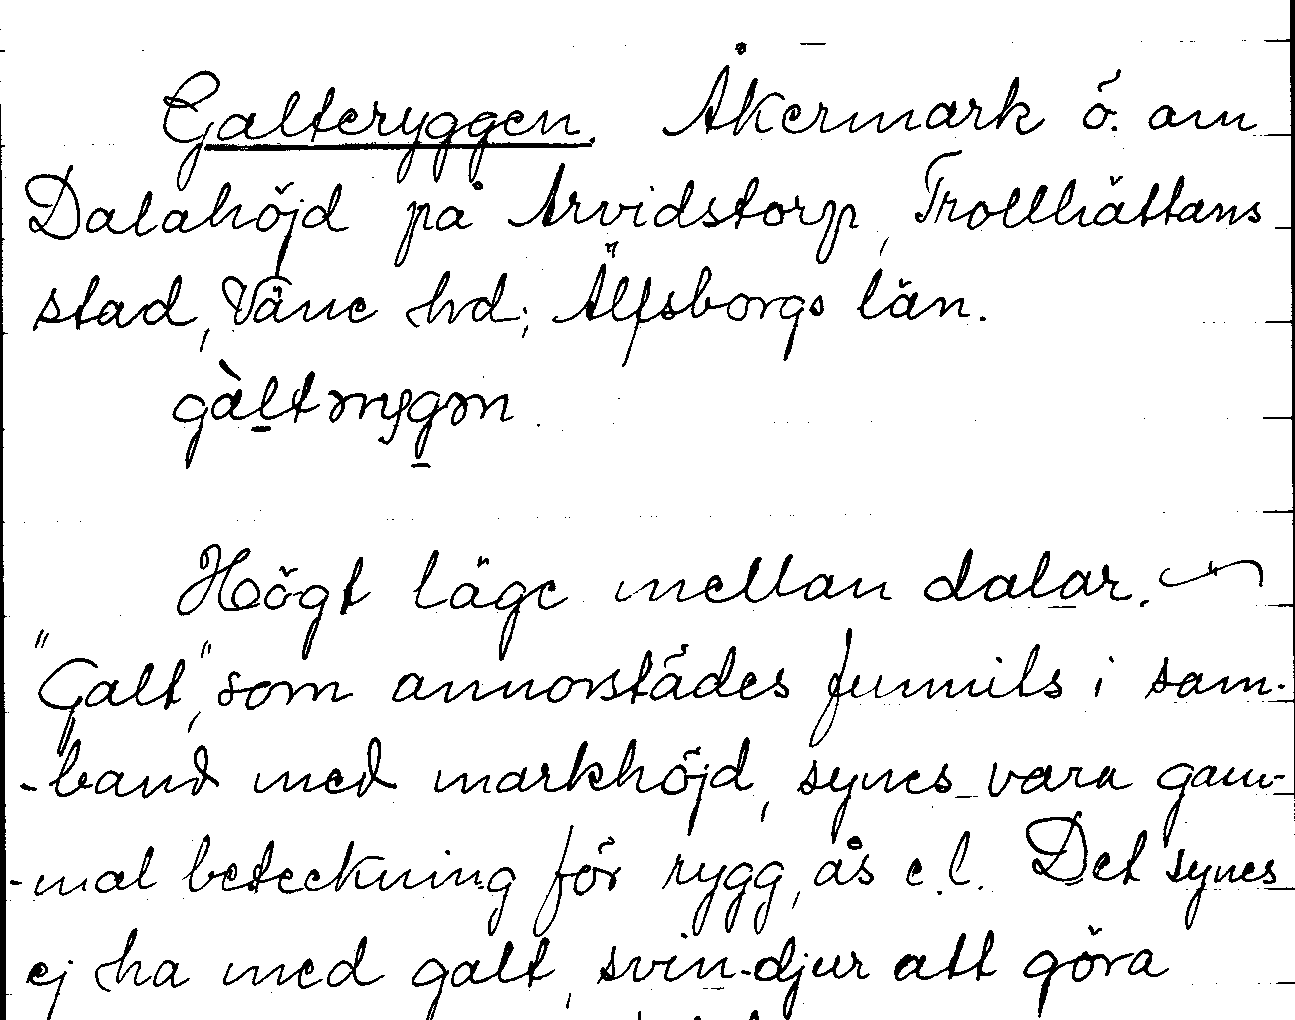 Galteryggen. Åkermark ö. om
Dalahöjd på Arvidstorp, Trollhättans
stad, Väne hd; Älfsborgs län.
gàltərygən.
Högt läge mellan dalar.
"Galt", som annorstädes funnits i sam-
-band med markhöjd, synes vara gam-
-mal beteckning för rygg, ås e.l. Det synes
ej ha med galt, svin-djur att göra